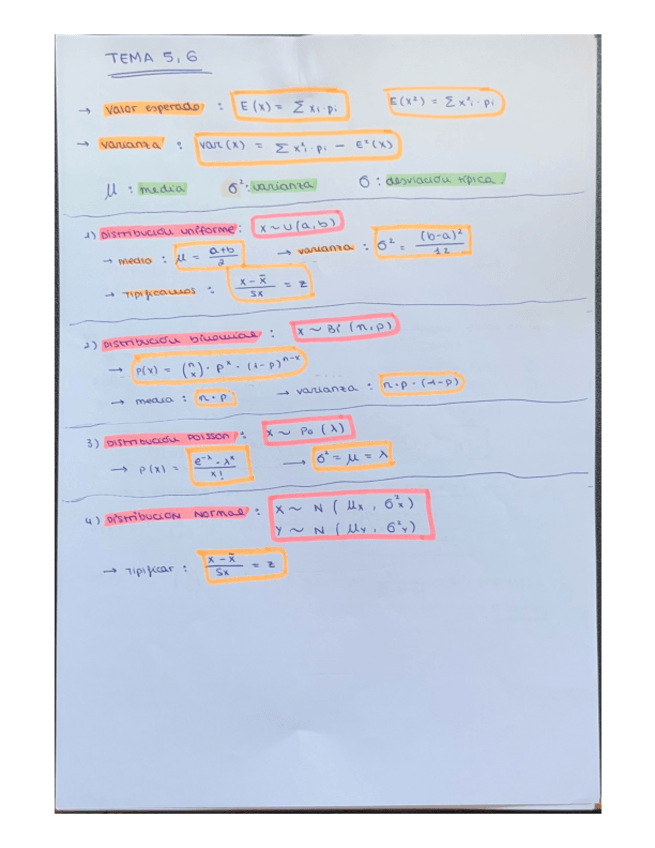 TEMA 5, 6
→ Valor esperado : E(x) = Σ xi · pi E(x²) = Σ x²i · pi
→ varianza : var(x) = Σ x²i · pi − E²(x)
μ : media σ² : varianza σ : desviación típica.
1) Distribución uniforme : X ~ U(a,b)
→ media : μ = a+b/2 → varianza : σ² = (b-a)²/12
→ Tipificamos : x - x̄/Sx = z
2) Distribución binomial : X ~ Bi (n,p)
→ P(x) = (n x) · p^x · (1-p)^n-x
→ media : n · p → varianza : n · p · (1-p)
3) Distribución Poisson : X ~ Po (λ)
→ P(x) = e^-λ · λ^x/x! → σ² = μ = λ
4) Distribución Normal : X ~ N ( μx , σ²x )
Y ~ N ( μy , σ²y )
→ Tipificar : x - x̄/Sx = z